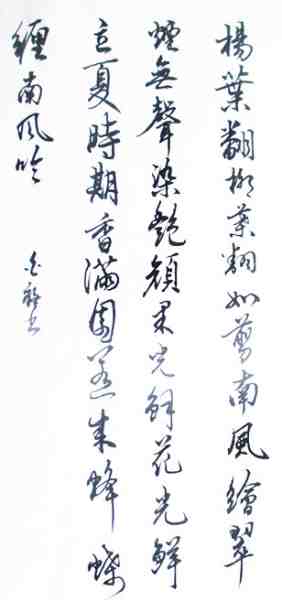 楊葉翻柳葉翻如剪南風繪翠
煙無聲染艷顔果光鮮花光鮮
立夏時期香滿園惹來蜂蝶
纏南风吟